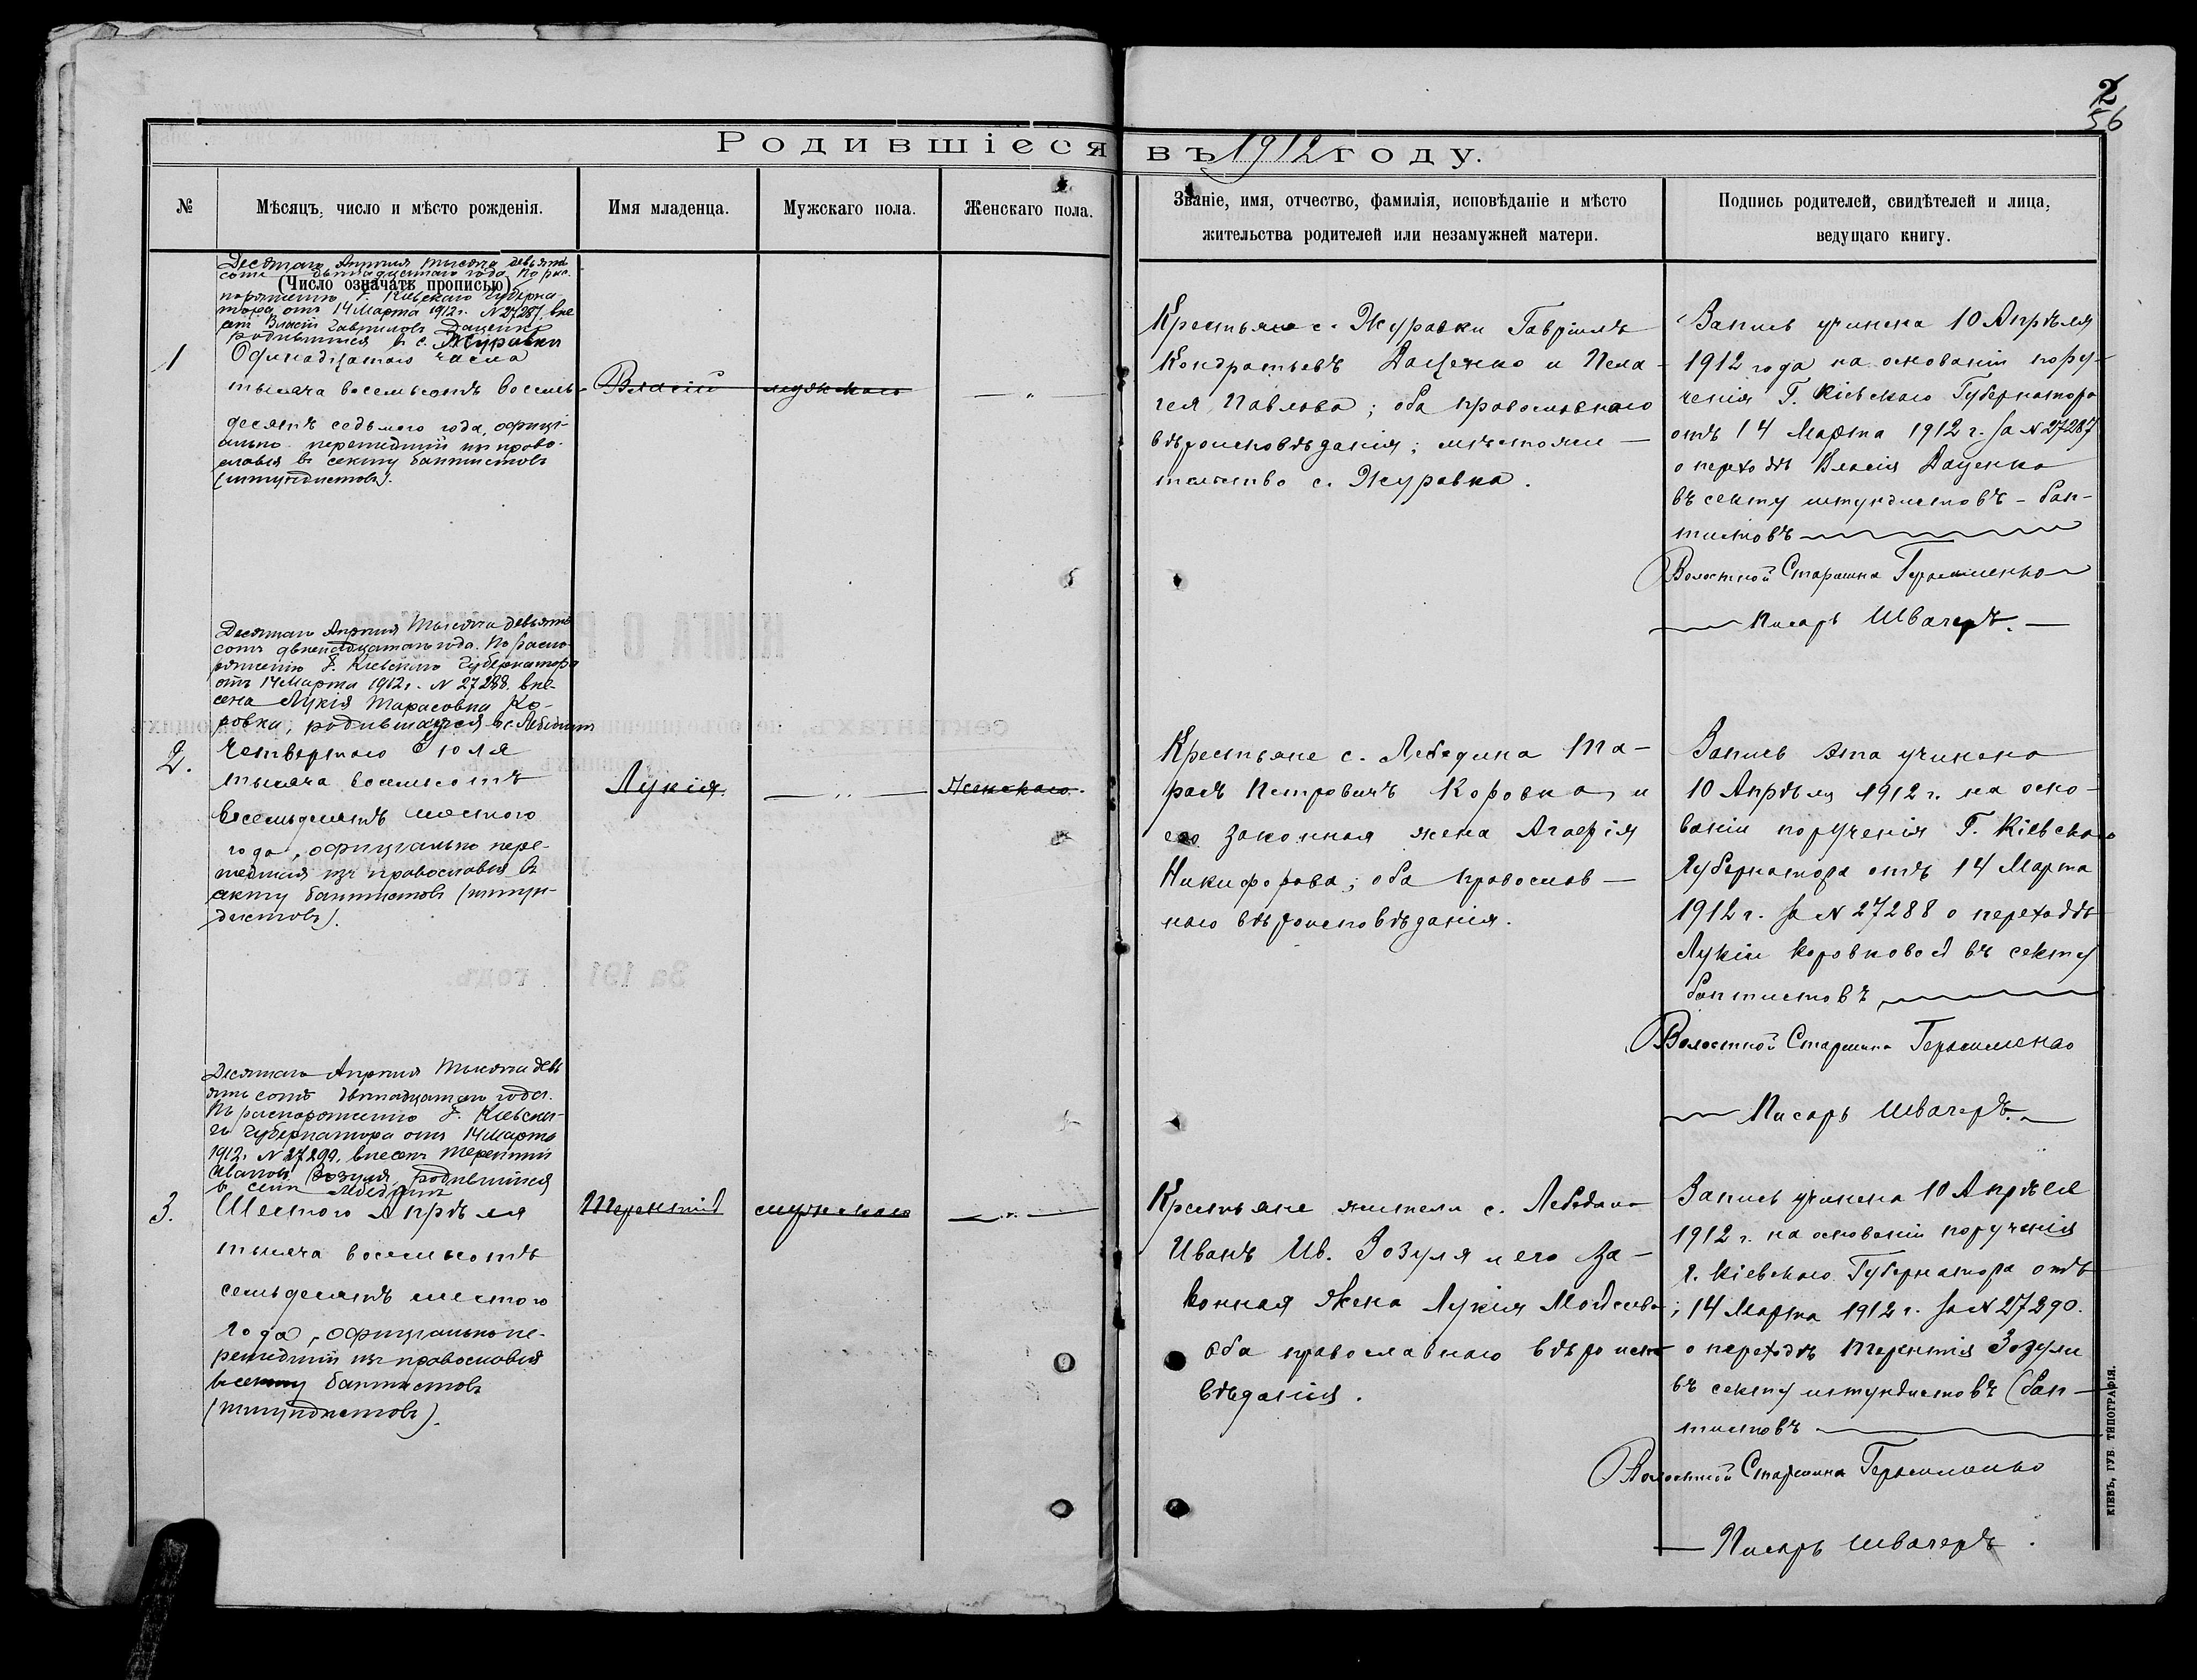 2
56
Родившіеся въ 1912 году.
№
Мѣсяцъ, число и мѣсто рожденія.
Имя младенца.
Мужскаго пола.
Женскаго пола.
Званіе, имя, отчество, фамилія, исповѣданіе и мѣсто
жительства родителей или незамужней матери.
Подпись родителей, свидѣтелей и лица,
ведущаго книгу.
Десятаго Апрѣля тысяча девьять
сотъ двѣнадцатаго года по рас-
(Число означать прописью)
поряженію Г. Кіевскаго Губерна-
тора отъ 14 Марта 1912 г. N 27287, вне-
сенъ Власій Гавриловъ Даценко
родившійся в с. Журавки
1
Одинадцатаго
тысяча восемьсотъ восемь-
десятъ седьмого года, офиці-
ально перешедшій из право-
славія в секту баптистовъ
(штундистовъ).
Власій
мужского
Крестьяне с. Журавки Гавріилъ
Кондратьевъ Даценко и Пела-
гея Павлова; оба православнаго
вѣроисповѣданія; мѣстожи-
тельство с. Журавка.
Запись учинена 10 Апрѣля
1912 года на основаніи пору-
ченія Г. Кіевскаго Губернатора
отъ 14 Марта 1912 г. за N 27287
о переходѣ Власія Даценко
въ секту штундистовъ - бап-
тистовъ
Волостной Старшина Герасименко
Писарь Швачеръ.
Десятаго Апрѣля тысяча девьять
сотъ двѣнадцатаго года. По распо-
ряженію Г. Кіевскаго Губернатора
отъ 14 Марта 1912 г. N 27288. вне-
сена Лукія Тарасовна Ко-
ровка, родившаяся в с. Лебединѣ
2.
Четвертаго Іюля
тысяча восемьсотъ
восемьдесятъ шестого
года, офиціально пере-
шедшая из православія в
секту баптистовъ (штун-
дистовъ).
Лукія.
Женскаго.
Крестьяне с. Лебедина Та-
расъ Петровичъ Коровка и
его законная жена Агафія
Никифорова; оба православ-
наго вѣроисповѣданія.
Запись эта учинена
10 Апрѣля 1912 г. на осно-
ваніи порученія Г. Кіевскаго
Губернатора отъ 14 Марта
1912 г. за N 27288 о переходѣ
Лукіи Коровковой въ секту
баптистовъ
Волостной Старшина Герасименко
Писарь Швачеръ.
Десятаго Апрѣля тысяча девь
ять сотъ двѣнадцатаго года.
По распоряженію Г. Кіевска-
го Губернатора отъ 14 Марта
1912 г. N 27290, внесенъ Терентій
Ивановъ Зозуля, родившійся
в селѣ Лебединѣ
3.
Шестого Апрѣля
тысяча восемьсотъ
семьдесятъ шестого
года, офиціально пе-
решедшій из православія
в секту баптистовъ
(штундистовъ).
Терентій
мужского
Крестьяне жители с. Лебедина
Иванъ Ив. Зозуля и его за-
конная жена Лукія Мойсеева;
оба православнаго вѣроиспо-
вѣданія.
Запись учинена 10 Апрѣля
1912 г. на основаніи порученія
г. Кіевскаго Губернатора отъ
14 Марта 1912 г. за N 27290.
о переходѣ Терентія Зозули
въ секту штундистовъ (бап-
тистовъ
Волостной Старшина Герасименко
Писарь Швачеръ.
КІЕВЪ, ГУБ. ТИПОГРАФІЯ.